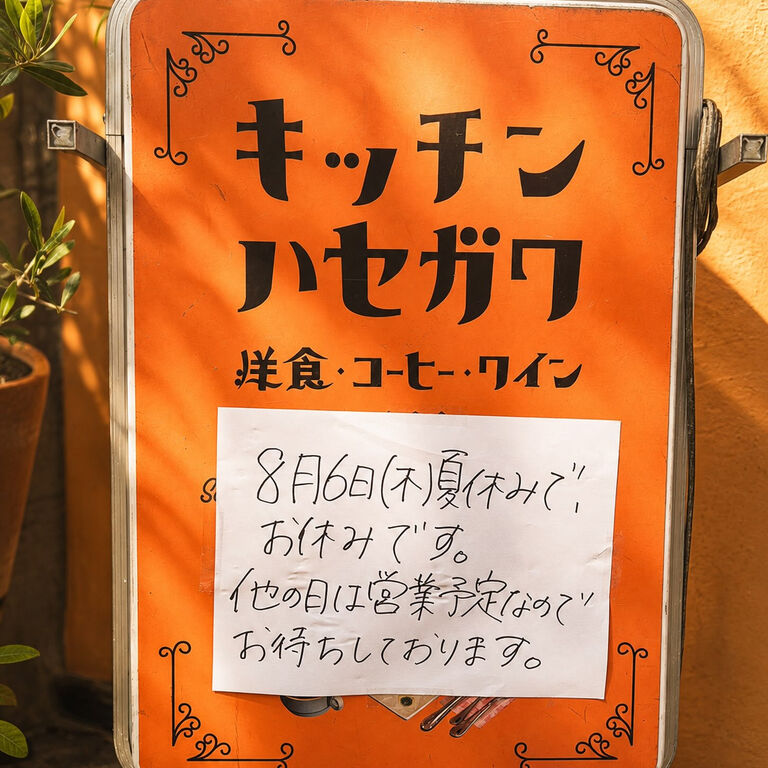 キッチン
ハセガワ
洋食・コーヒー・ワイン
8月6日(木)夏休みで、
お休みです。
他の日は営業予定なので
お待ちしております。